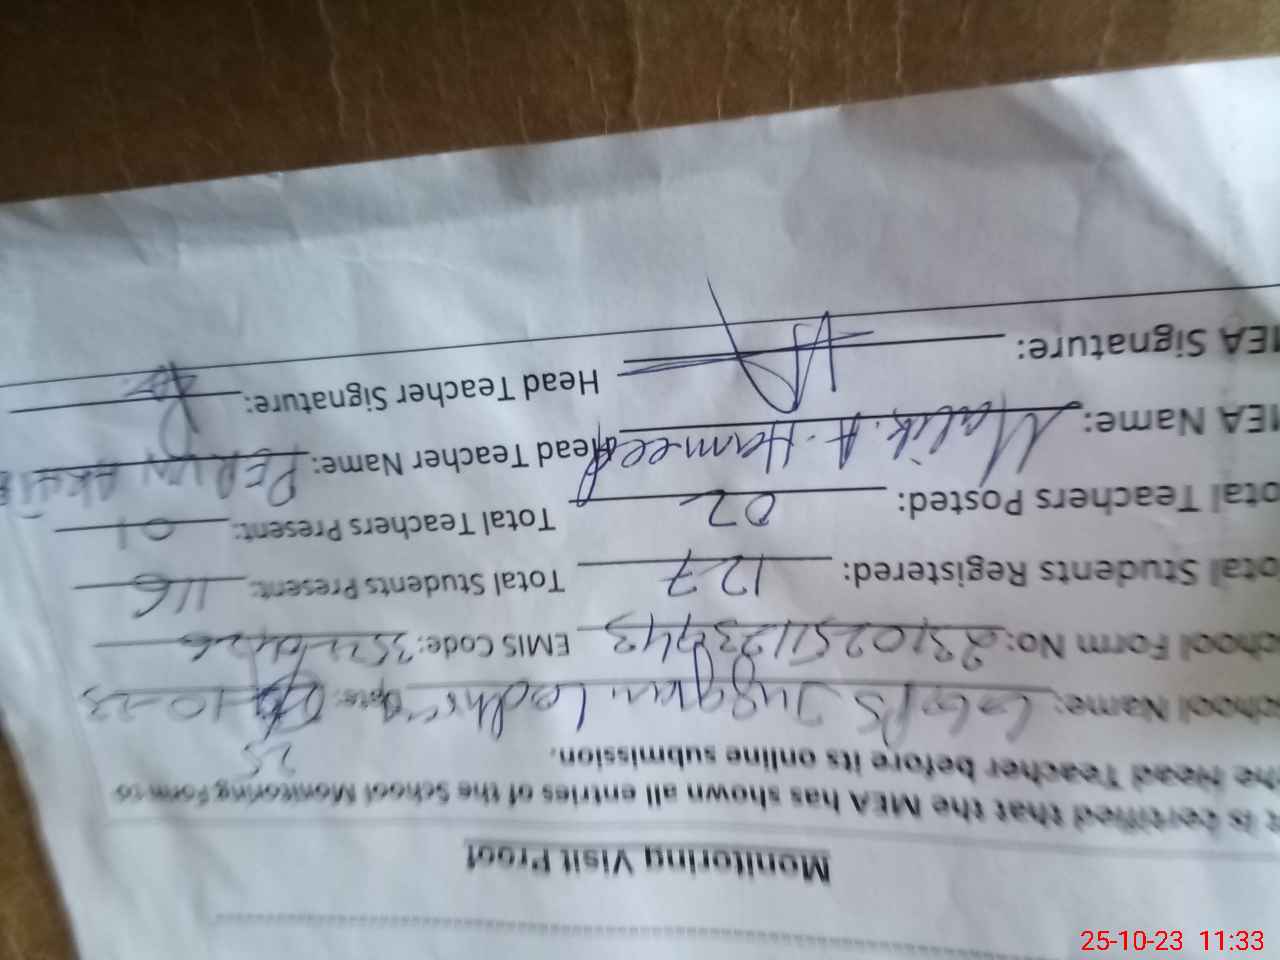 Monitoring Visit Proof
t is certified that the MEA has shown all entries of the School Monitoring Form to
he Head Teacher before its online submission.
25
chool Name: GGPS Jugian Lodhr Date: -10-23
chool Form No: EMIS Code:
otal Students Registered: 127 Total Students Present: 116
otal Teachers Posted: 02 Total Teachers Present: 01
MEA Name: Malik. A. Hameed Head Teacher Name: PERVIN AKHTE
MEA Signature: Head Teacher Signature:
25-10-23 11:33